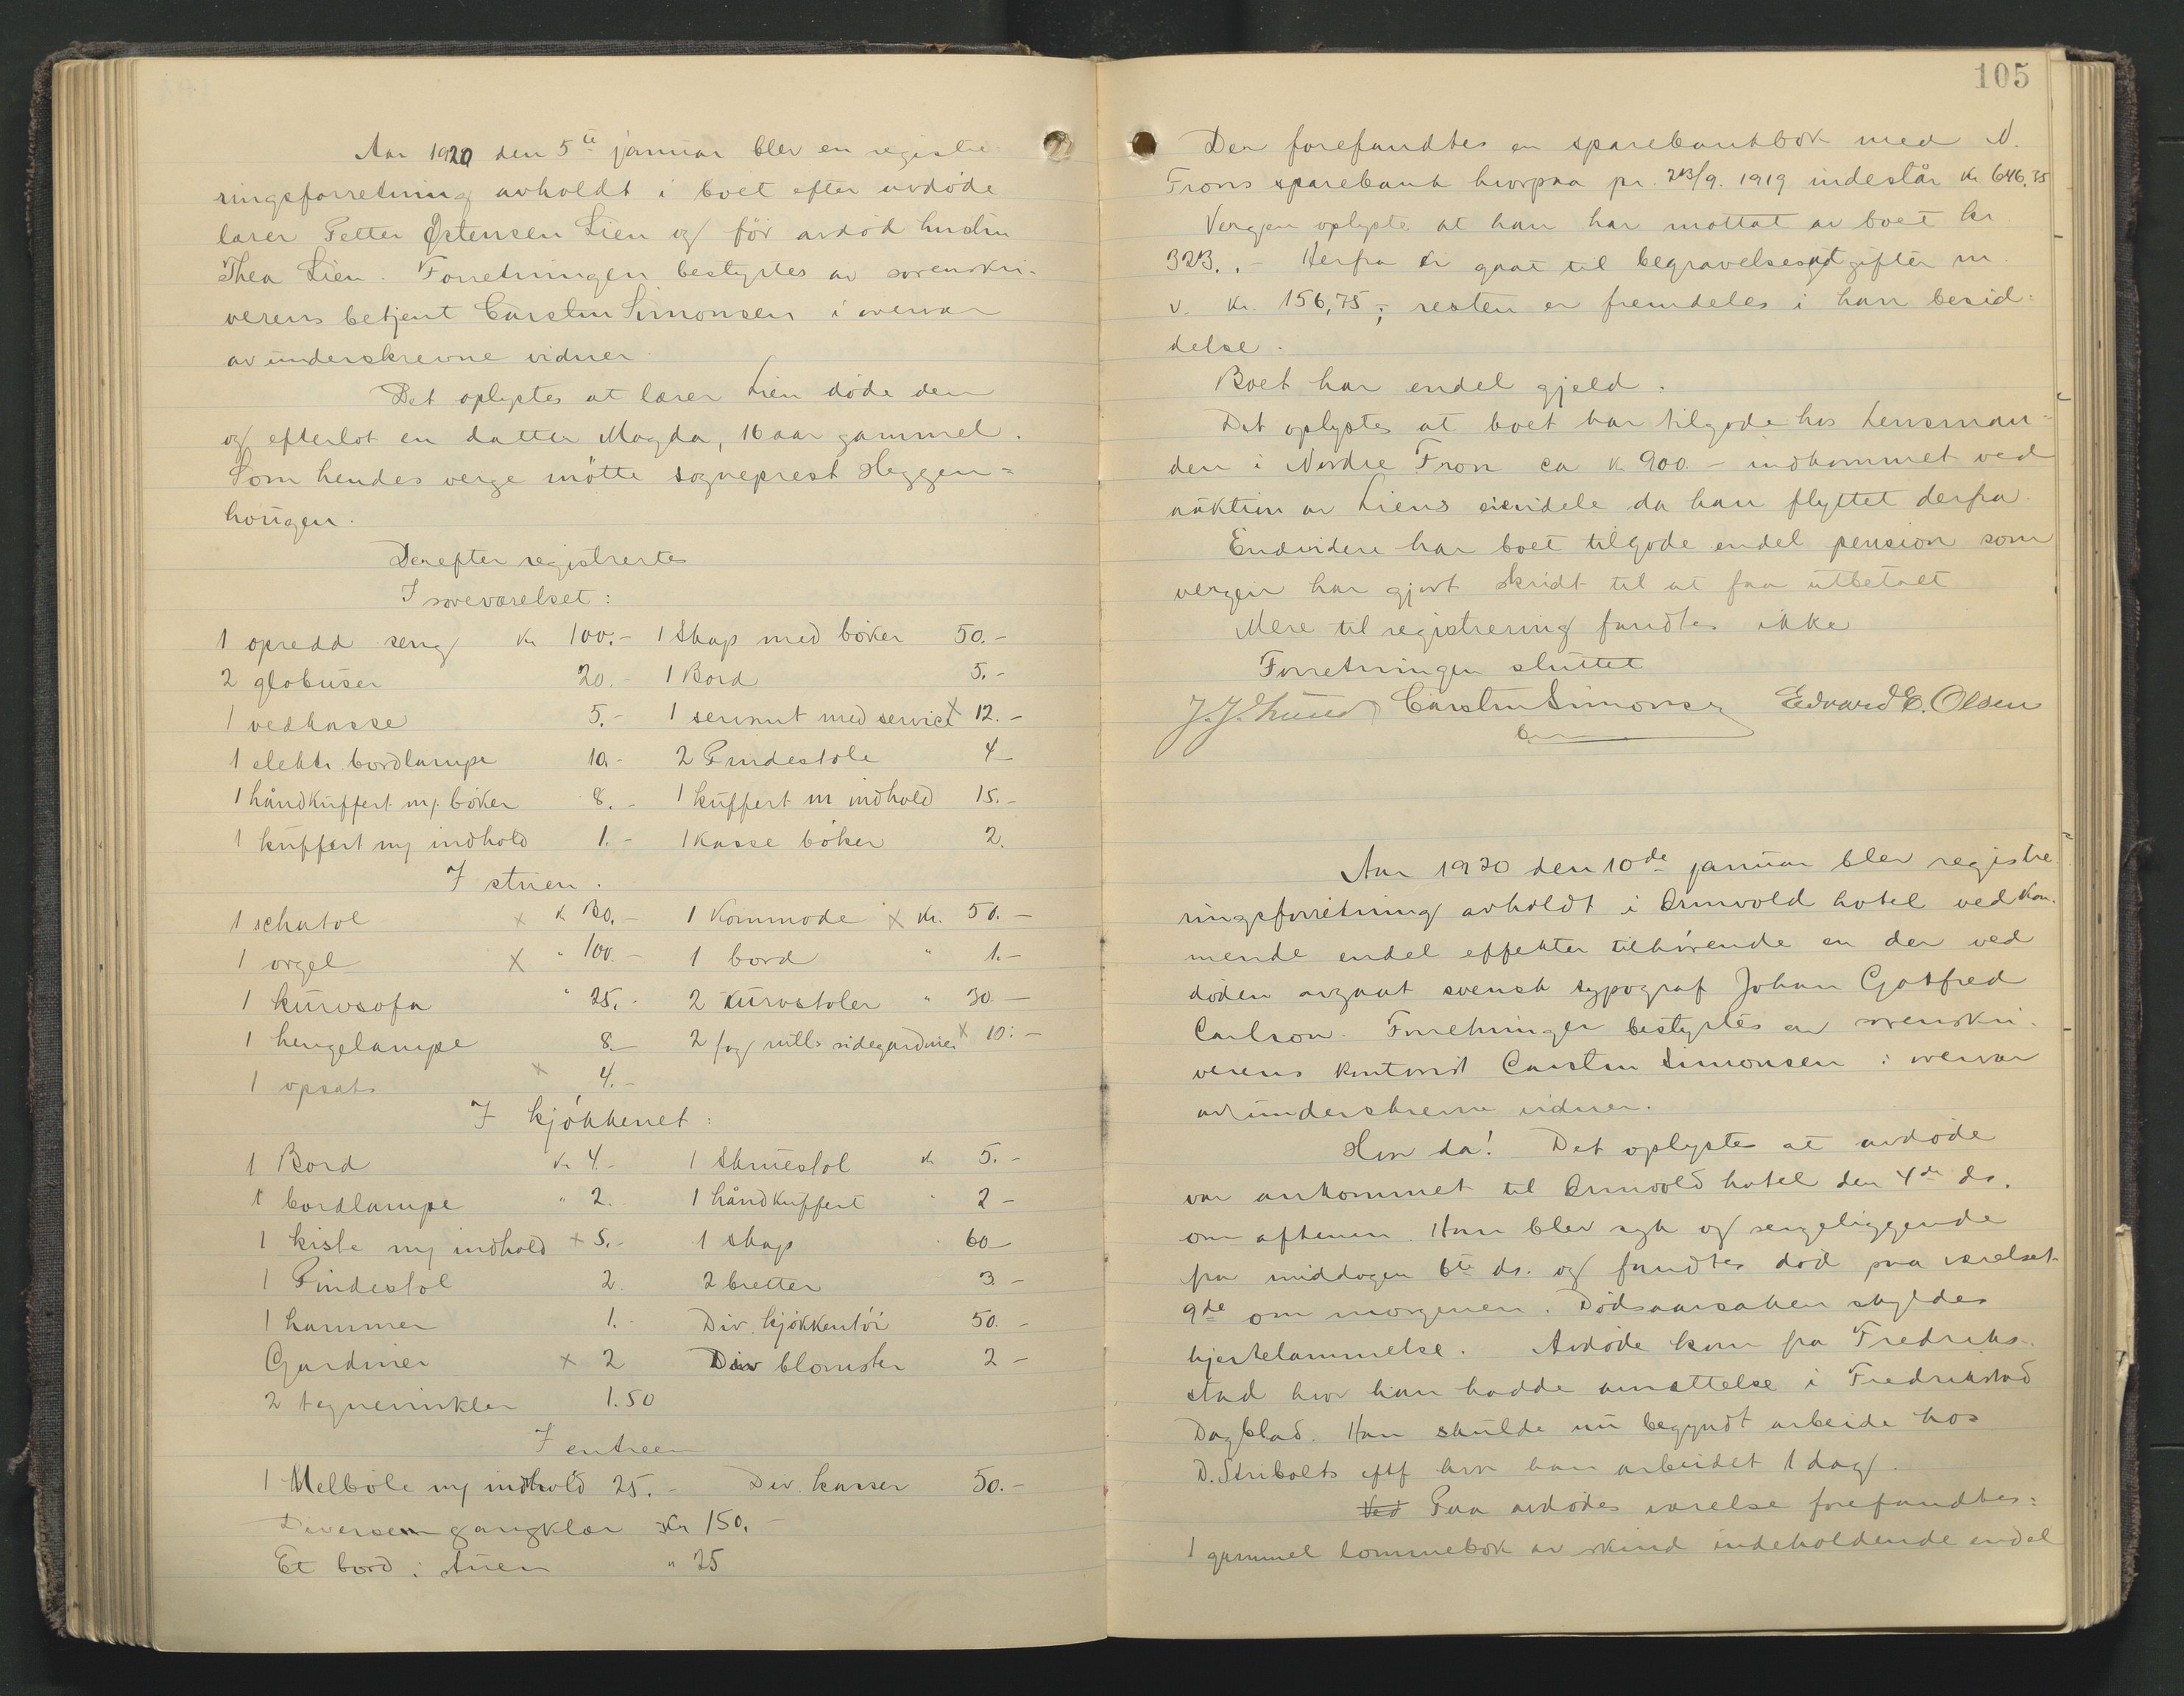 Aar 1920 den 5te januar blev en registre
ringsforretning avholdt i boet efter avdøde
lærer Petter Østensen Lien og før avdød hustru
Thea Lien. Forretningen bestyrtes av sorenskri-
verens betjent Carsten Simonsen i overvær
av underskrevne vidner
Det oplystes at lærer Lien døde den
og efterlot en datter Magda, 16 aar gammel.
Som hendes verge møtte sogneprest Heggen=
hougen.
Derefter registrertes
I soveværelset:
1 opredd seng kr 100.- 1 Skap med bøker 50.-
2 globuser 20.- 1 Bord 5.-
1 vedkasse 5.- 1 servant med service x 12.-
1 elektr. bordlampe 10.- 2 Pindestole 4-
1 håndkuffert m/ bøker 8.- 1 kuffert m indhold 15.-
1 kuffert m/ indhold 1.- 1 kasse bøker 2.
I stuen.
1 schatol x k 130.- 1 Kommode x kr. 50.-
1 orgel x " 100.- 1 bord " 1.-
1 kurvsofa " 25.- 2 kurvstoler " 30.-
1 hengelampe 8.- 2 fag sidegardiner x 10.-
1 opsats x 4.-
I kjøkkenet:
1 Bord kr 4.- 1 Skruestol kr 5.-
1 bordlampe " 2. 1 håndkuffert " 2-
1 kiste m/ indhold x 5.- 1 skap 60-
1 Pindestol 2 2 bretter 3-
1 hammer 1.- Div. kjøkkentøi 50.-
Gardiner x 2 Div blomster 2-
2 tegnevinkler 1.50
I entreen
1 Melbøle m/ indhold 25.- Div. kasser 50.-
Diverse gangklær Kr 150.-
Et bord i stuen " 25
105
Der forefandtes en sparebankbok med N.
Frons sparebank hvorpaa pr. 23/9. 1919 indestår kr 646,35
Vergen oplyste at han har mottat av boet kr
323.- Herfra er gaat til begravelsesutgifter m.
v. kr. 156,75; resten er fremdeles i han besid=
delse.
Boet har endel gjeld.
Det oplystes at boet har tilgode hos Lensman=
den i Nordre Fron ca k. 900.- indkommet ved
auktion av Liens eiendele da han flyttet derfra.
Endvidere har boet tilgode endel pension som
vergen har gjort skridt til at faa utbetalt
Mere til registrering fandtes ikke
Forretningen sluttet
J. J. Lund Carsten Simonsen Edvard E. Olsen
Aar 1920 den 10de januar blev registre
ringsforretning avholdt i Grønvold hotel vedkom.
mende endel effekter tilhørende en der ved
døden avgaat svensk typograf Johan Gotfred
Carlson. Forretningen bestyrtes av sorenskri-
verens kontorist Carsten Simonsen i overvær
av underskrevne vidner.
Hvor da! Det oplystes at avdøde
var ankommet til Grønvold hotel den 4de ds.
om aftenen. Han blev syk og sengeliggende
fra middagen 6te ds. og fandtes død paa værelset
9de om morgenen. Dødsaarsaken skyldes
hjertelammelse. Avdøde kom fra Fredrik-
stad hvor han hadde ansættelse i Fredrikstad
Dagblad. Han skulde nu begyndt arbeide hos
D. Stribolts eftf hvor han arbeidet 1 dag.
Ved Paa avdødes værelse forefandtes:
1 gammel lommebok av skind indeholdende endel